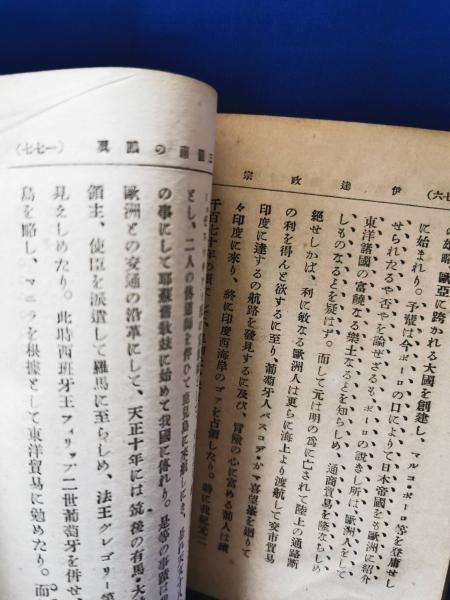 伊達政宗
の雄略、歐亞に跨かれる大國を創建し、マルコ・ポーロ等を登庸せし
に始まれり。予輩は今ポーロの口によりて日本帝國をも歐洲に紹介
せられたるや否やを論ぜざるも、ポーロの説きし所は、歐洲人をして
東洋諸國の富陸なる樂土なるとを知らしめ、通商貿易を隆ならしめ
しものなるとを疑はず。而して元は明の爲に亡されて陸上の通路斷
絶せしかば、利に敏なる歐洲人は更らに海上より渡航して交市貿易
の利を得んと欲するに至り、葡萄牙人バスコダ・ガマ喜望峯を廻りて
印度に達するの航路を發見するに及び、冒險の心に富める葡人は續
々印度に來り、終に印度西海岸のゴアを占領したり。時に我紀元二
千百七十年の
(一七七)
とし、二人の
の事にして耶蘇舊教玆に始めて我國に傳れり。是等の事蹟は
歐洲との交通の沿革にして、天正十年には筑後の有馬・大
領主、使臣を派遣して羅馬に至らしめ、法王グレゴリー第
見えしめたり。此時西班牙王フィリップ二世葡萄牙を併せ、
島を略し、マニラを根據として東洋貿易に勉めたり。而